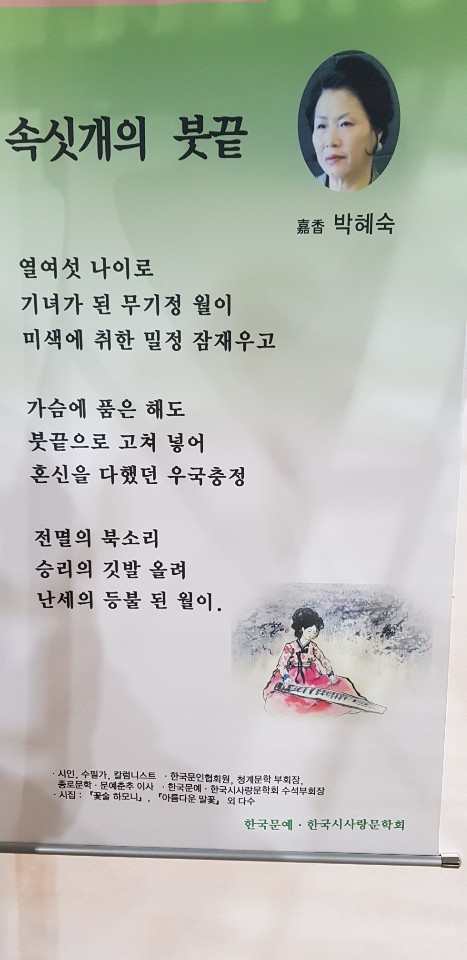 속싯개의 붓끝
嘉香 박혜숙
열여섯 나이로
기녀가 된 무기정 월이
미색에 취한 밀정 잠재우고
가슴에 품은 해도
붓끝으로 고쳐 넣어
혼신을 다했던 우국충정
전멸의 북소리
승리의 깃발 올려
난세의 등불 된 월이.
· 시인, 수필가, 칼럼니스트 · 한국문인협회원, 청계문학 부회장,
종로문학 · 문예춘추 이사 · 한국문예 · 한국시사랑문학회 수석부회장
· 시집 : 『꽃술 하모니』, 『아름다운 말꽃』 외 다수
한국문예 · 한국시사랑문학회